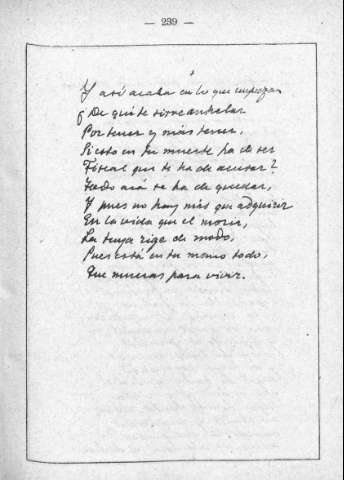 — 239 —
Y así acaba en lo que empieza
¿De qué te sirve anhelar
Por tener y más tener,
Si esto en tu muerte ha de ser
Fiscal que te ha de acusar?
Todo acá se ha de quedar,
Y pues no hay más que adquirir
En la vida que el morir,
La tuya rige de modo,
Pues está en tu mano todo,
Que mueras para vivir.